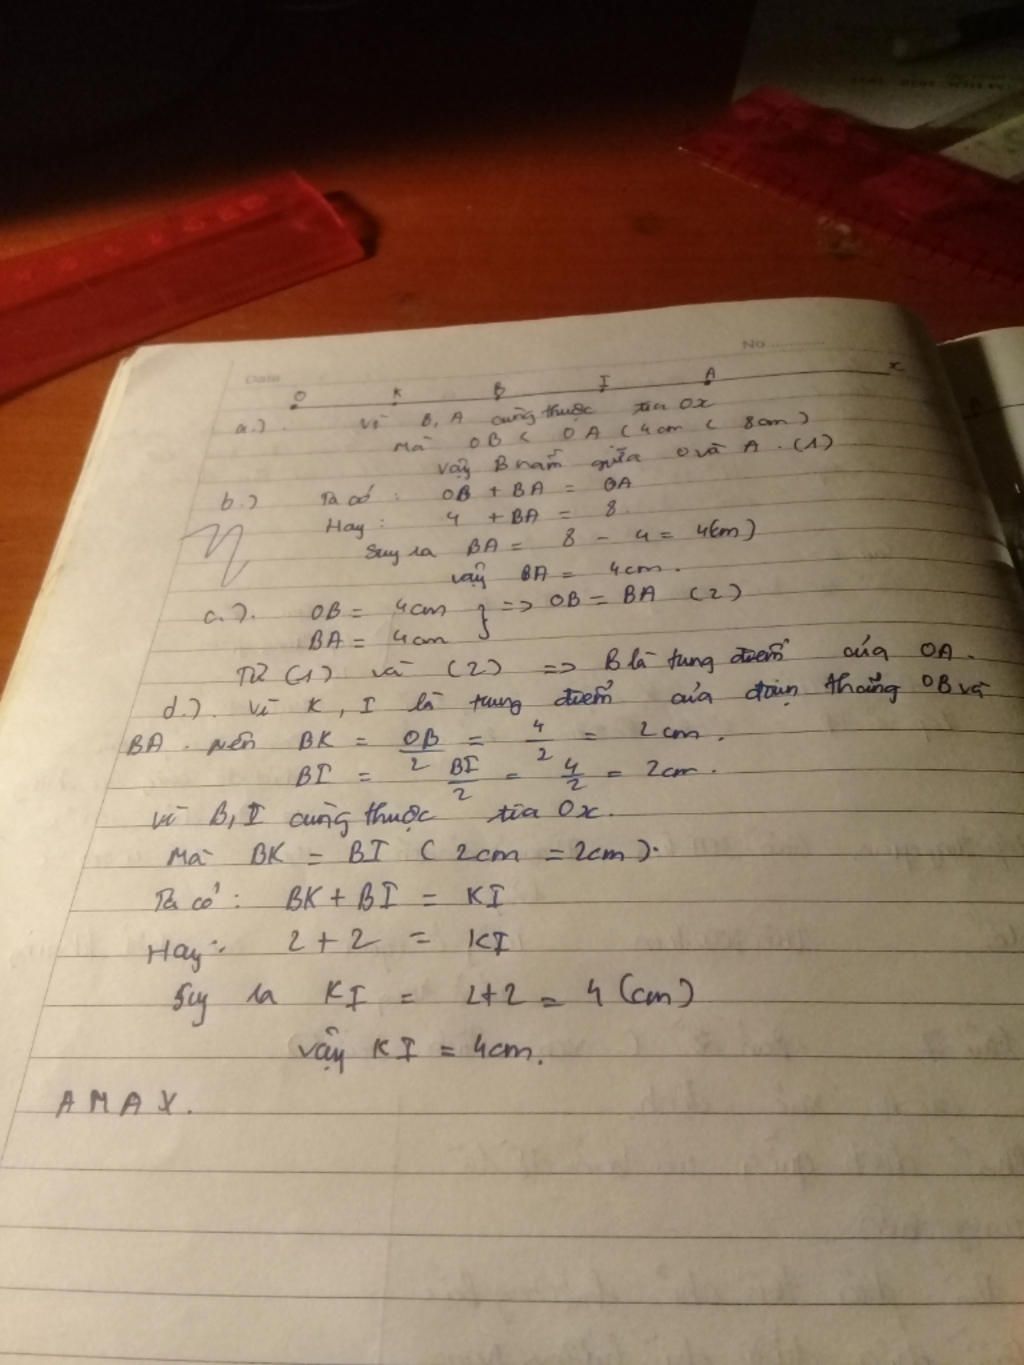 No..........
Date
O K B I A x
a.). Vì B, A cùng thuộc tia Ox
Mà OB < OA (4cm < 8cm)
Vậy B nằm giữa O và A. (1)
b.) Ta có: OB + BA = OA
Hay: 4 + BA = 8.
Suy ra BA = 8 - 4 = 4(cm)
vậy BA = 4cm.
c.). OB = 4cm } => OB = BA (2)
BA = 4cm
Từ (1) và (2) => B là tung điểm của OA.
d.). Vì K, I là trung điểm của đoạn thẳng OB và
BA. nên BK = OB/2 = 4/2 = 2cm.
BI = BI/2 = 4/2 = 2cm.
vì B, I cùng thuộc tia Ox.
Mà BK = BI (2cm = 2cm).
Ta có: BK + BI = KI
Hay: 2 + 2 = KI
Suy ra KI = 2+2 = 4 (cm)
vậy KI = 4cm.
AMAX.